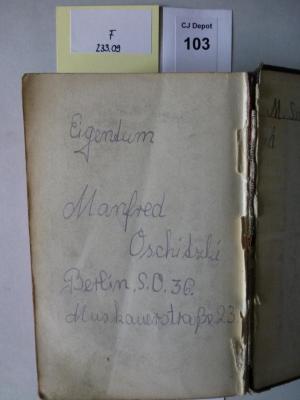 F
233.09
CJ Depot
103
Eigentum
Manfred
Oschitzki
Berlin, S.O. 36.
Muskauerstraße 23
M.